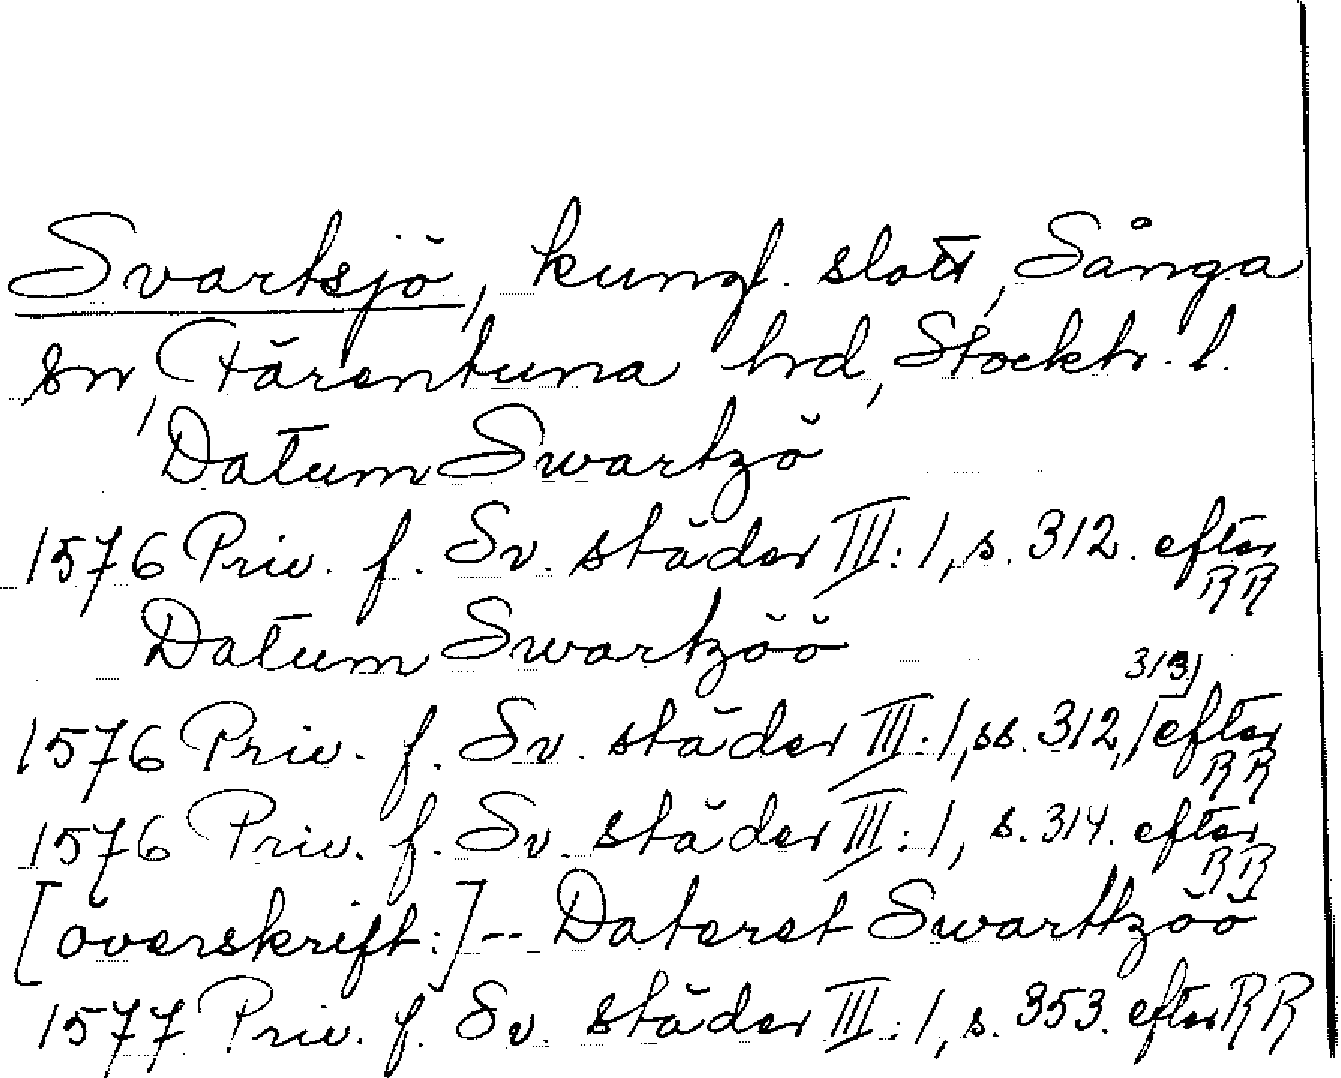 Svartsjö, kungl. slott, Sånga
sn, Färentuna hrd, Stockh. l.
Datum Swartzö
1576 Priv. f. Sv. städer III:1, s. 312. efter RR
Datum Swartzöö
1576 Priv. f. Sv. städer III:1, ss. 312, 313, efter RR
1576 Priv. f. Sv. städer III:1, s. 314. efter RR
[överskrift:] --- Dateret Swarttzöö
1577 Priv. f. Sv. städer III:1, s. 353. efter RR